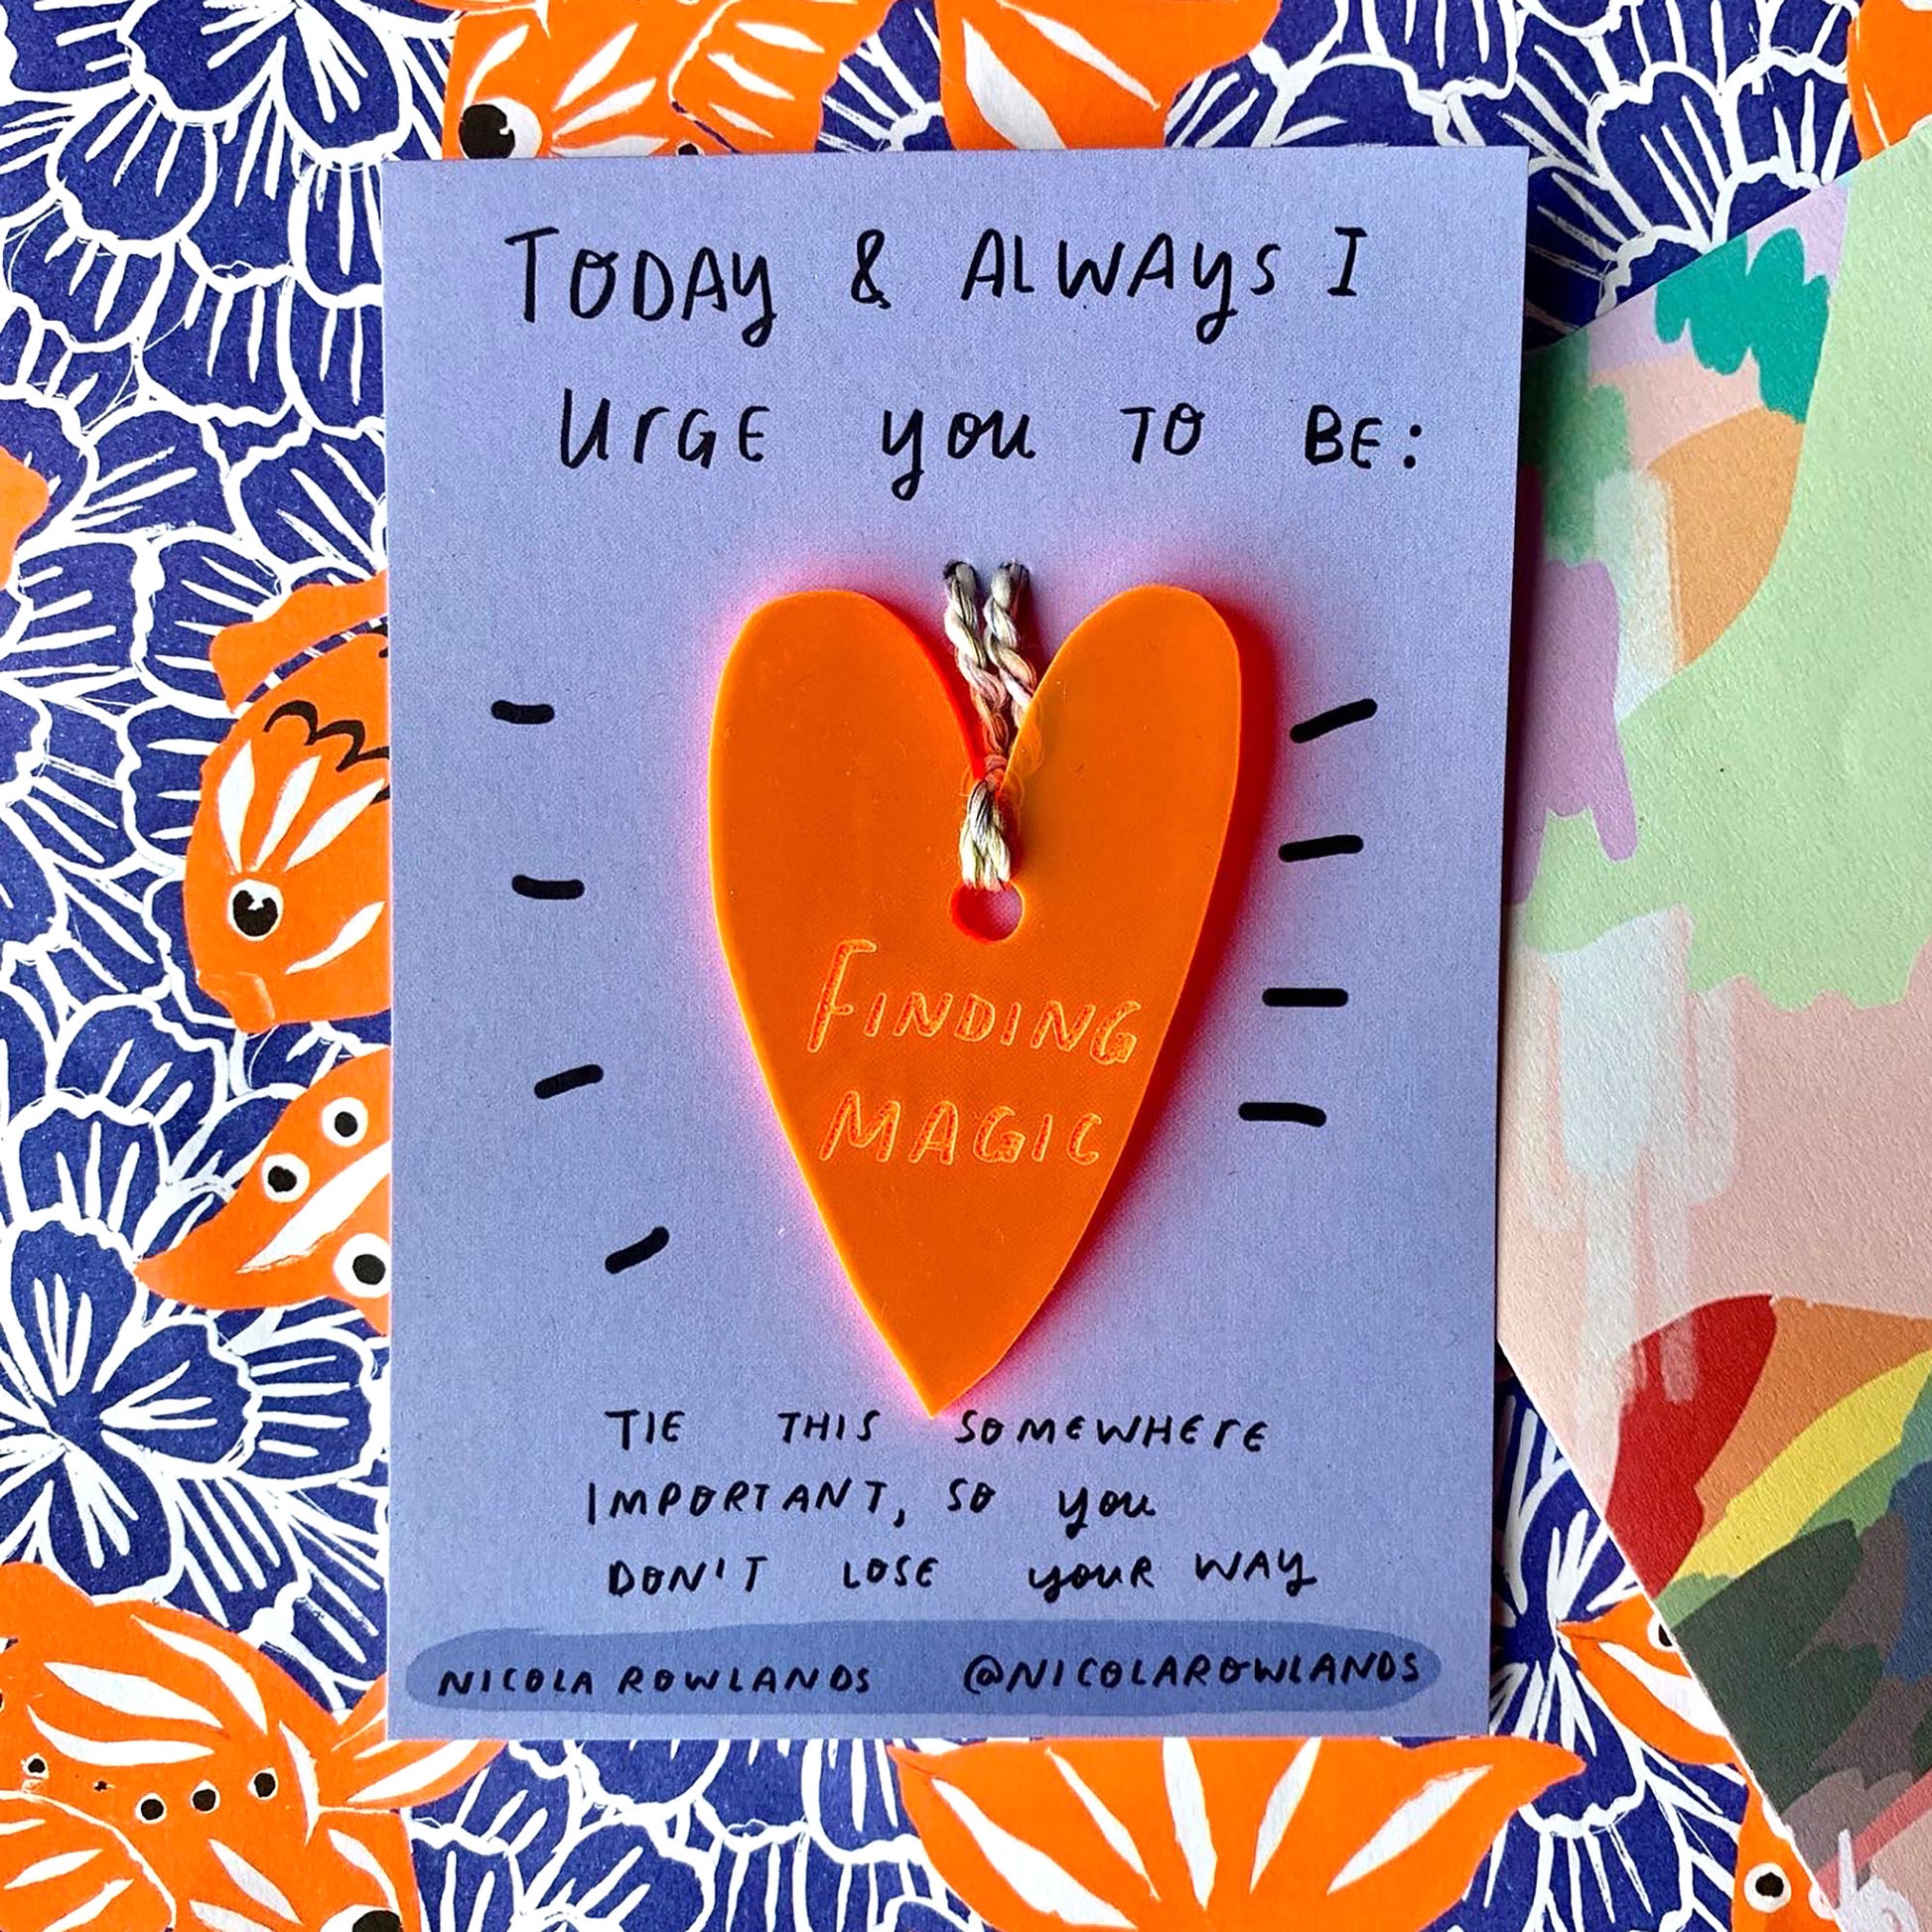 TODAY & ALWAYS I
URGE YOU TO BE:
FINDING
MAGIC
TIE THIS SOMEWHERE
IMPORTANT, SO YOU
DON'T LOSE YOUR WAY
NICOLA ROWLANDS @NICOLAROWLANDS